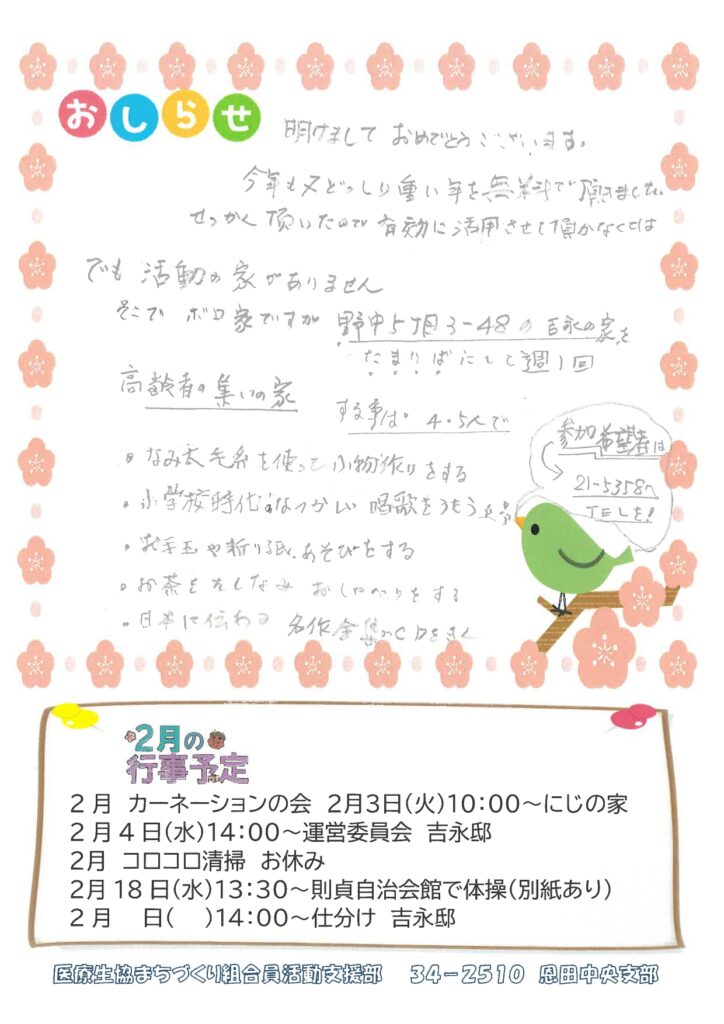 おしらせ
明けまして おめでとうございます。
今年も又どっしり重い年を無料で頂きました。
せっかく頂いたので有効に活用させて頂かなくては
でも活動の家がありません
そこで ボロ家ですが 野中5丁目3-48の吉永の家を
たまりばにして週1回
高齢者の集いの家
する事は。 4.5人で
・なみ太毛糸を使って小物作りをする
・小学校時代のなつかしい唱歌をうもう
・お手玉や折り紙あそびをする
・お茶をたしなみ おしゃべりをする
・日本に伝わる 名作全集のCDをきく
参加希望者は
21-5358へ
TELを!
2月の
行事予定
2月 カーネーションの会 2月3日(火)10:00~にじの家
2月4日(水)14:00~運営委員会 吉永邸
2月 コロコロ清掃 お休み
2月18日(水)13:30~則貞自治会館で体操(別紙あり)
2月 日( )14:00~仕分け 吉永邸
医療生協まちづくり組合員活動支援部 34-2510 恩田中央支部